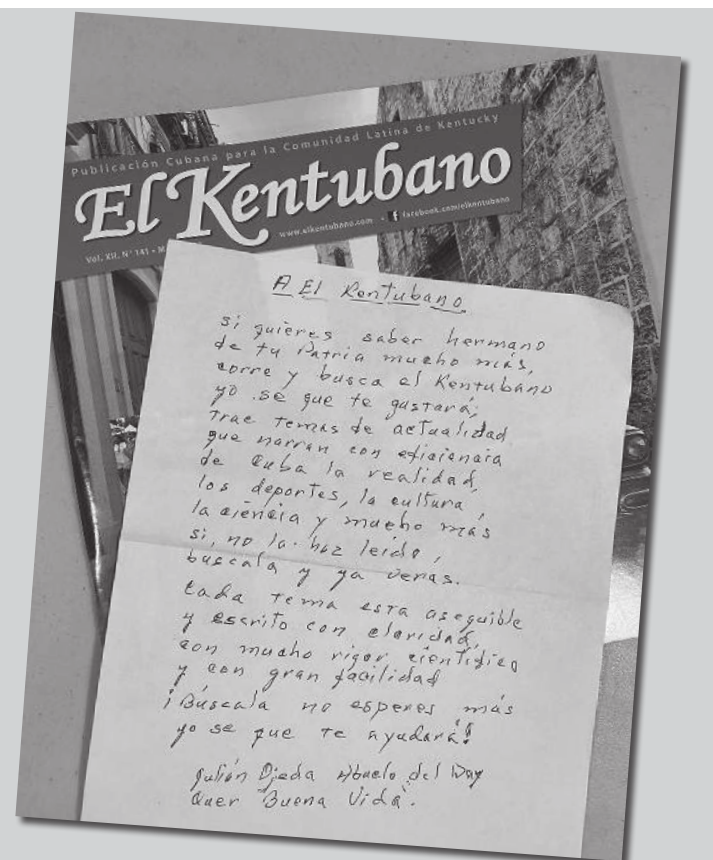 Publicación Cubana para la Comunidad Latina de Kentucky
El Kentubano
www.elkentubano.com • facebook.com/elkentubano
Vol. XII, N° 141 • M
A El Kentubano
si quieres saber hermano
de tu Patria mucho más,
corre y busca el Kentubano
yo se que te gustará;
trae temas de actualidad
que narran con eficiencia
de Cuba la realidad,
los deportes, la cultura,
la ciencia y mucho más
si, no la haz leido,
buscala y ya veras.
Cada tema esta asequible
y escrito con claridad,
con mucho rigor cientifico
y con gran facilidad
¡Búscala no esperes más
yo se que te ayudará!
Julián Ojeda Abuelo del Way
Quer "Buena Vida".